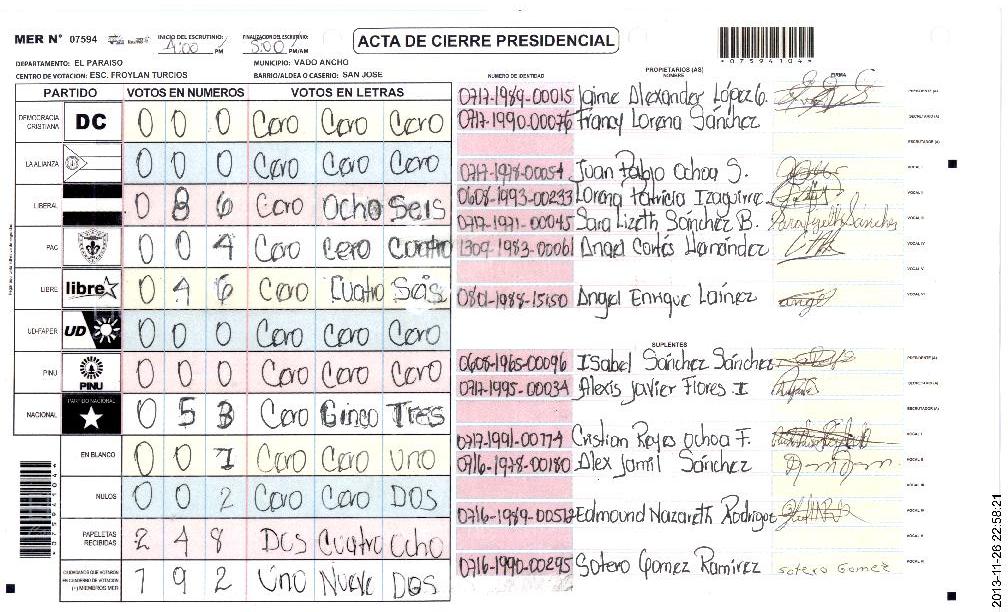 MER N° 07594 INICIO DEL ESCRUTINIO: 4:00 PM FINALIZACION DEL ESCRUTINIO: 5:00 PM/AM ACTA DE CIERRE PRESIDENCIAL
*07594104*
DEPARTAMENTO: EL PARAISO MUNICIPIO: VADO ANCHO
CENTRO DE VOTACION: ESC. FROYLAN TURCIOS BARRIO/ALDEA O CASERIO: SAN JOSE
PARTIDO VOTOS EN NUMEROS VOTOS EN LETRAS
DEMOCRACIA CRISTIANA DC 0 0 0 Cero Cero Cero
LA ALIANZA 0 0 0 Cero Cero Cero
LIBERAL 0 8 6 Cero Ocho Seis
PAC 0 0 4 Cero Cero Cuatro
LIBRE libre 0 4 6 Cero Cuatro Seis
UD-FAPER UD 0 0 0 Cero Cero Cero
PINU PINU 0 0 0 Cero Cero Cero
NACIONAL PARTIDO NACIONAL 0 5 3 Cero Cinco Tres
EN BLANCO 0 0 1 Cero Cero Uno
NULOS 0 0 2 Cero Cero Dos
PAPELETAS RECIBIDAS 2 4 8 Dos Cuatro Ocho
CIUDADANOS QUE VOTARON EN CUADERNO DE VOTACION (+) MIEMBROS MER 1 9 2 Uno Nueve Dos
PROPIETARIOS (AS)
NUMERO DE IDENTIDAD NOMBRE FIRMA
0717-1989-00015 Jaime Alexander López G. PRESIDENTE (A)
0717-1990-00076 Francy Lorena Sánchez SECRETARIO (A)
ESCRUTADOR (A)
0717-1978-00054 Juan Pablo Ochoa S. VOCAL I
0608-1993-00233 Lorena Patricia Izaguirre VOCAL II
0717-1971-00045 Sara Lizeth Sánchez B. Sara Lizeth Sanchez VOCAL III
1309-1983-00061 Angel Cortés Hernández VOCAL IV
VOCAL V
0801-1988-15150 Angel Enrique Laínez angel VOCAL VI
SUPLENTES
0608-1965-00096 Isabel Sánchez Sánchez PRESIDENTE (A)
0717-1995-00034 Alexis Javier Flores I SECRETARIO (A)
ESCRUTADOR (A)
0717-1991-00774 Cristian Reyes Ochoa F. VOCAL I
0716-1978-00180 Alex Jamil Sánchez VOCAL II
VOCAL III
0716-1989-00512 Edmound Nazareth Rodriguez VOCAL IV
VOCAL V
0716-1990-00295 Sotero Gomez Ramírez sotero Gomez VOCAL VI
*07594104*
2013-11-26 22:58:21